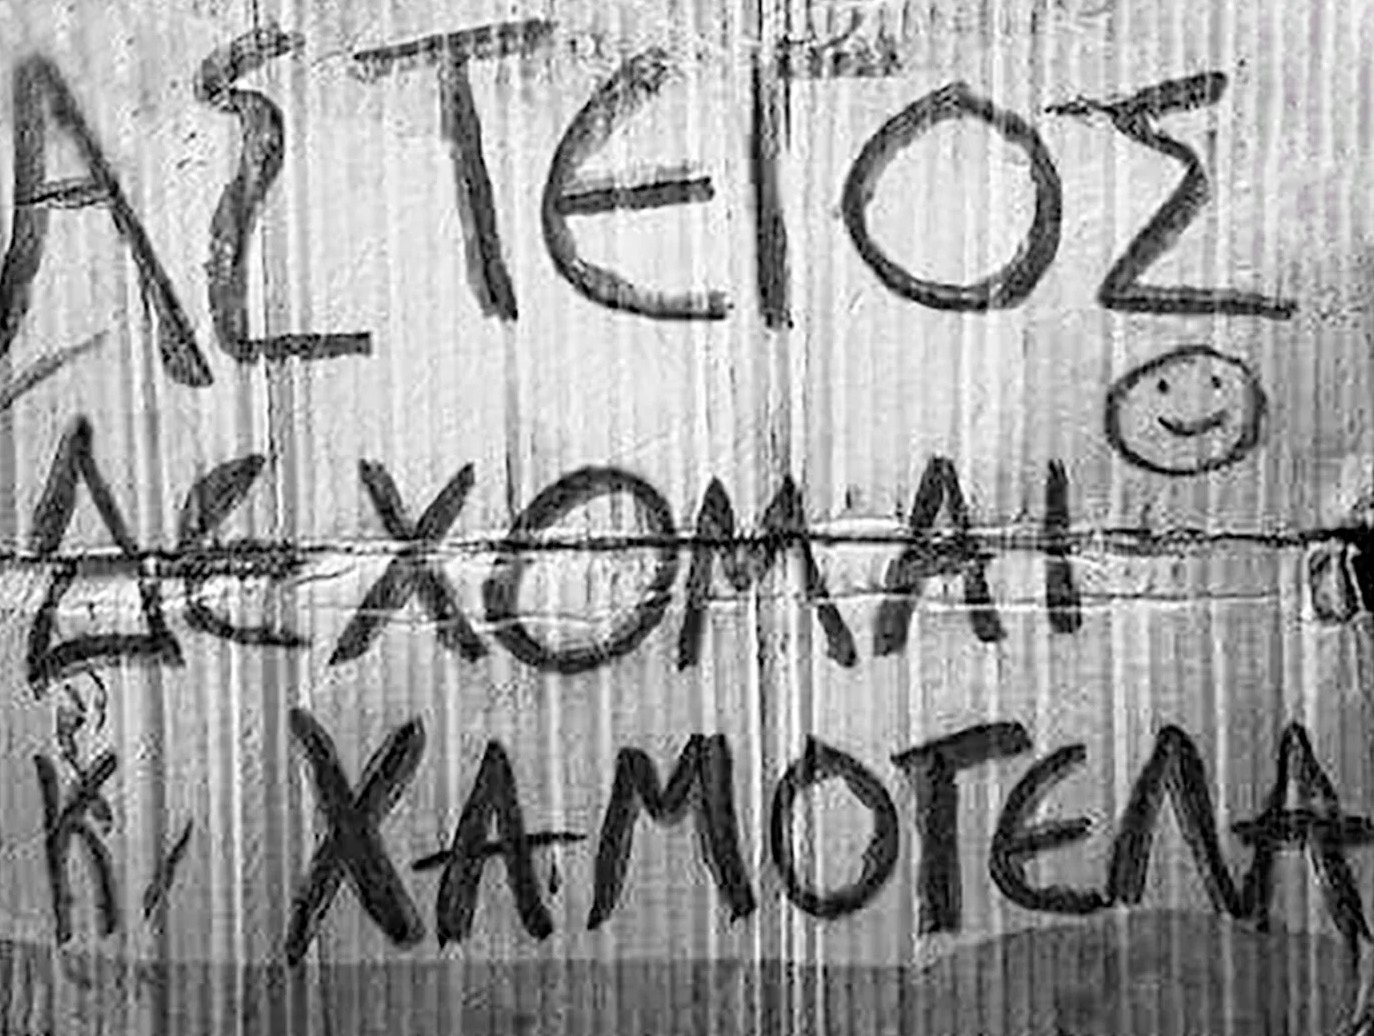 ΑΣΤΕΓΟΣ
ΔΕΧΟΜΑΙ
Κ, ΧΑΜΟΓΕΛΑ